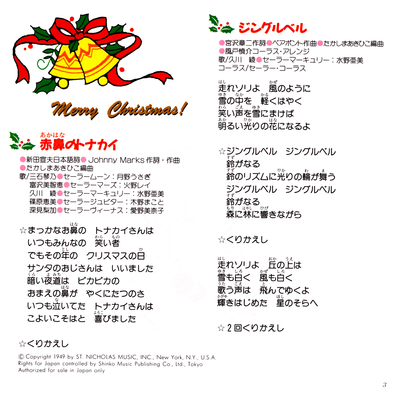 Merry Christmas!
赤鼻のトナカイ
あかはな
●新田宣夫日本語詞 ●Johnny Marks 作詞・作曲
●たかしまあきひこ編曲
歌/三石琴乃・セーラームーン：月野うさぎ
富沢美智恵・セーラーマーズ：火野レイ
久川 綾・セーラーマーキュリー：水野亜美
篠原恵美・セーラージュピター：木野まこと
深見梨加・セーラーヴィーナス：愛野美奈子
☆まっかなお鼻の トナカイさんは
いつもみんなの 笑い者
でもその年の クリスマスの日
サンタのおじさんは いいました
暗い夜道は ピカピカの
おまえの鼻が やくにたつのさ
いつも泣いてた トナカイさんは
こよいこそはと 喜びました
☆くりかえし
©Copyright 1949 by ST. NICHOLAS MUSIC, INC., New York, N.Y., U.S.A.
Rights for Japan controlled by Shinko Music Publishing Co., Ltd., Tokyo
Authorized for sale in Japan only
ジングルベル
●宮沢章二作詞 ●ペアポント作曲 ●たかしまあきひこ編曲
●風戸慎介コーラス・アレンジ
歌/久川 綾・セーラーマーキュリー：水野亜美
コーラス/セーラー・コーラス
走れソリよ 風のように
雪の中を 軽くはやく
笑い声を 雪にまけば
明るい光りの 花になるよ
☆ジングルベル ジングルベル
鈴がなる
鈴のリズムに 光りの輪が舞う
ジングルベル ジングルベル
鈴がなる
森に林に 響きながら
☆くりかえし
走れソリよ 丘の上は
雪も白く 風も白く
歌う声は 飛んでゆくよ
輝きはじめた 星のそらへ
☆2回くりかえし
3